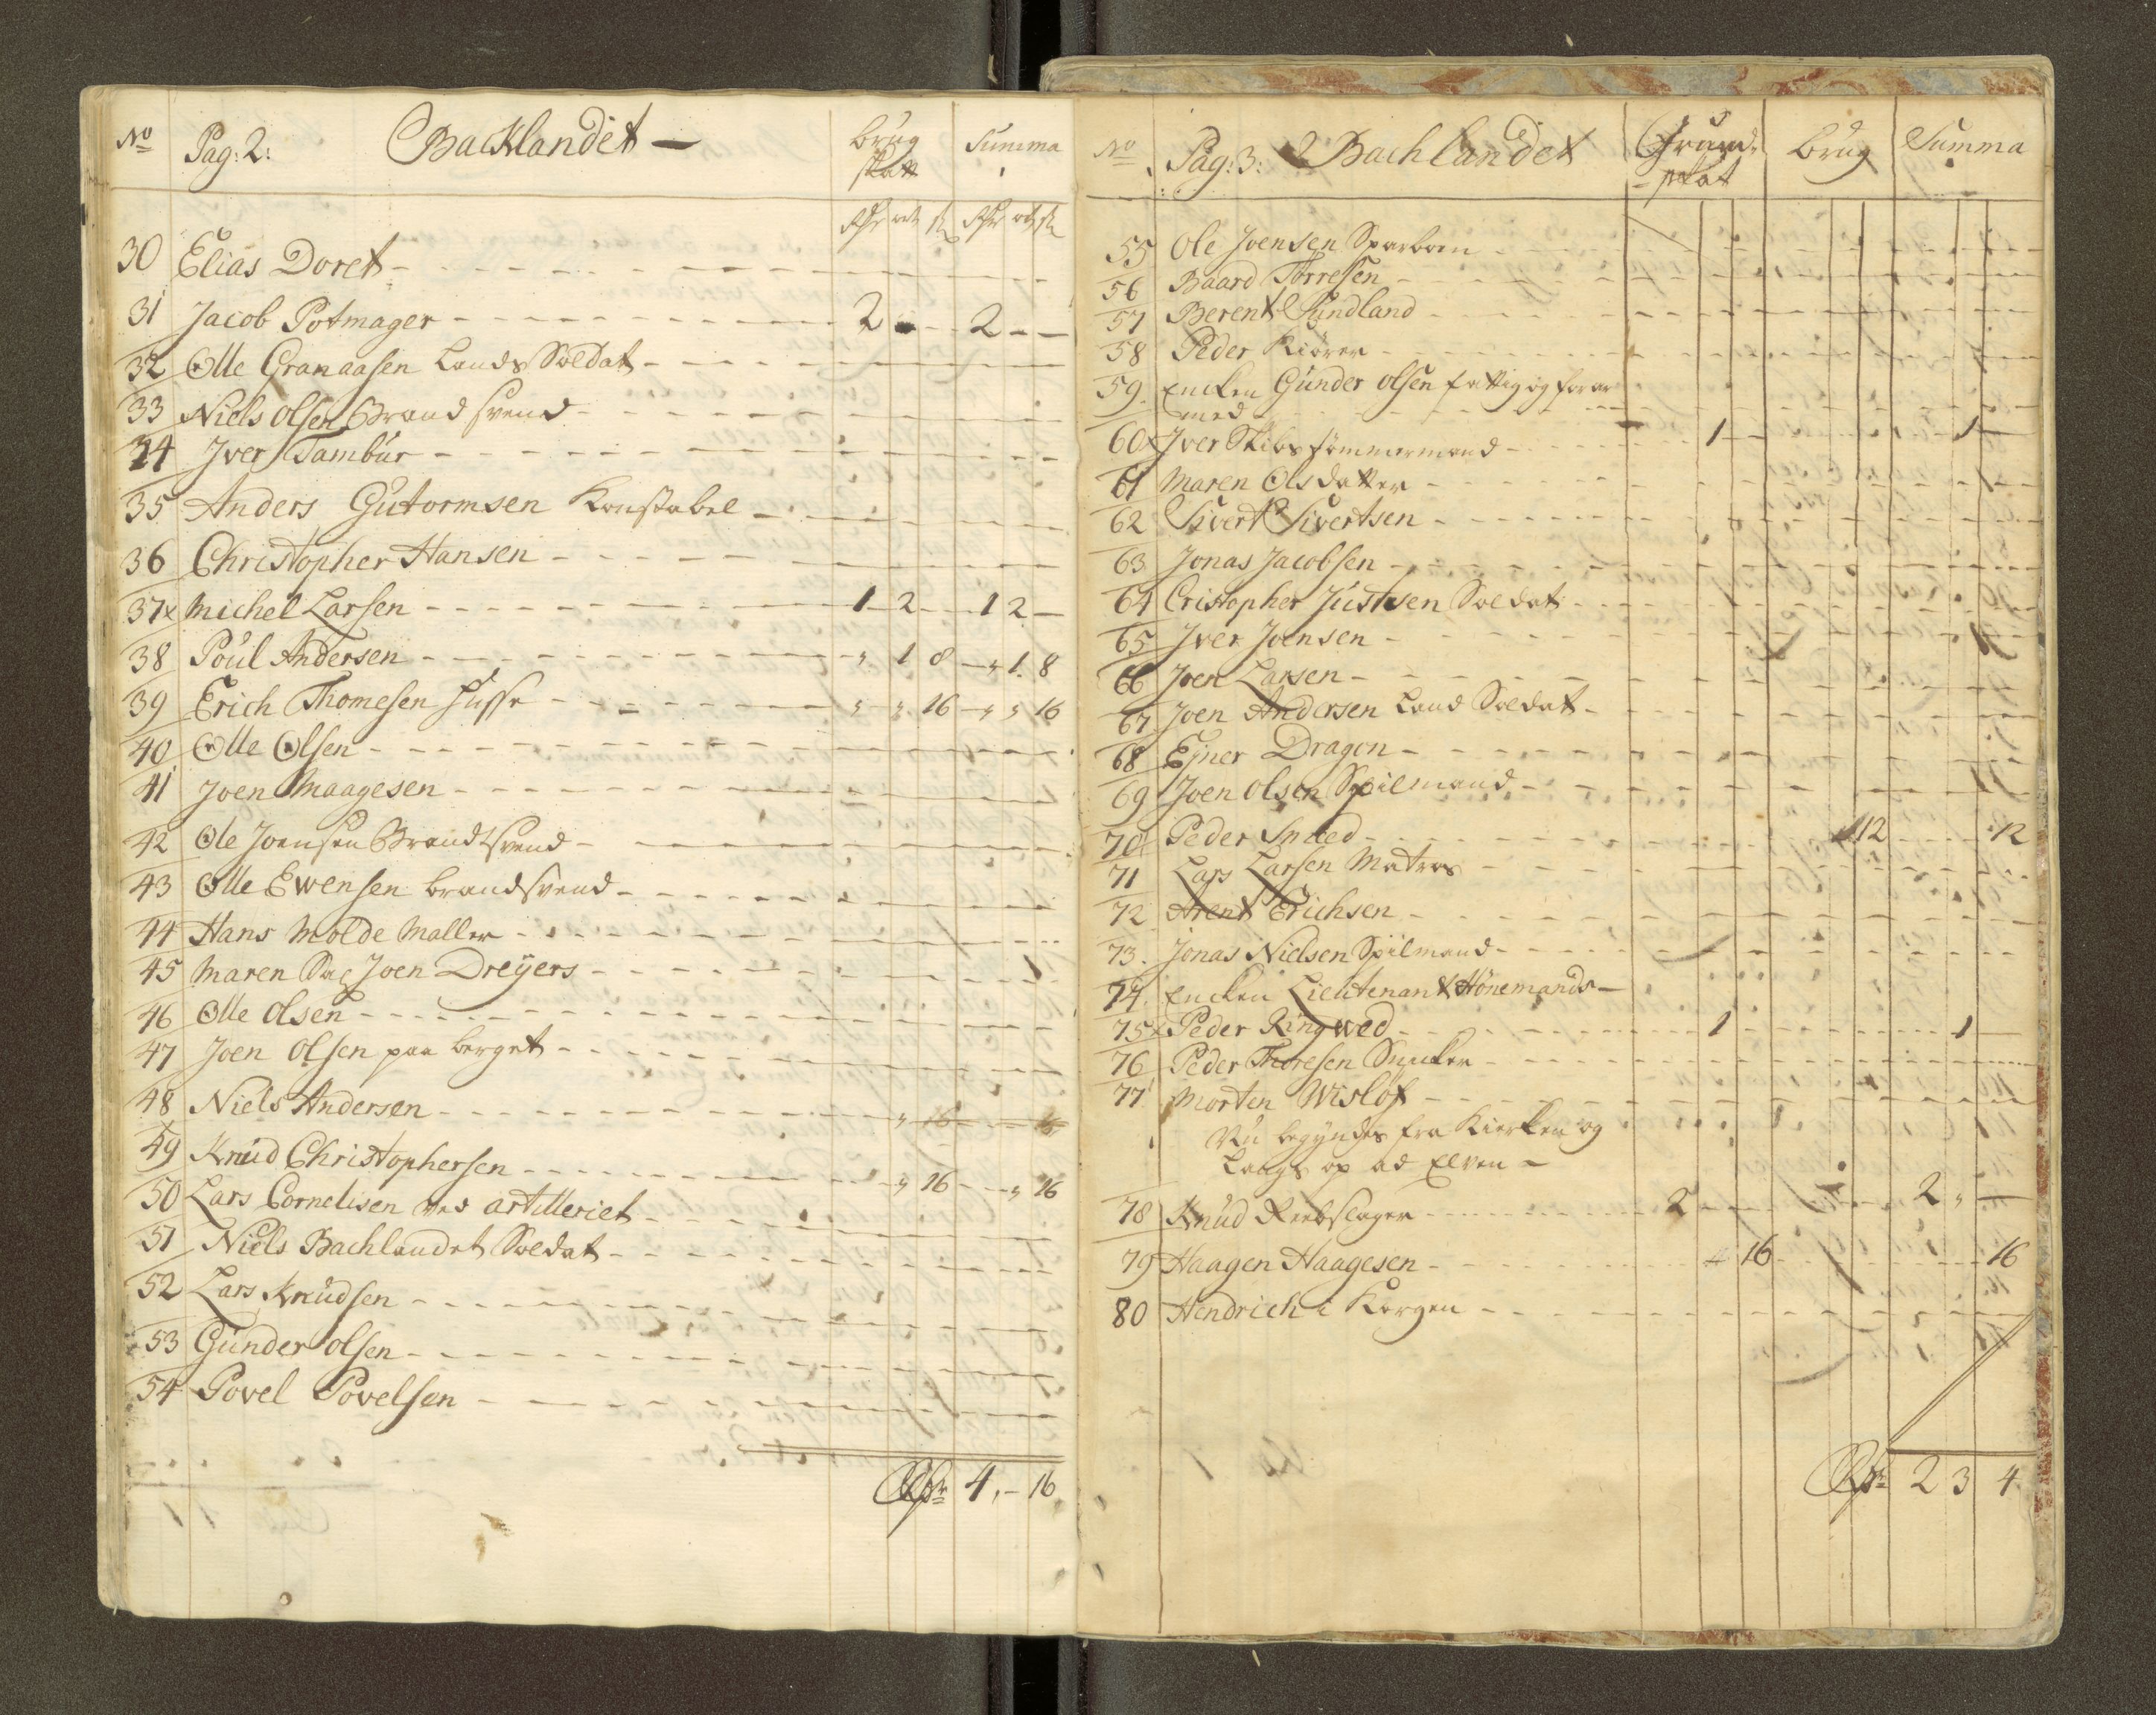 No Pag: 2: Backlandet — brug skatt Summa
Rdr ort s Rdr ort s
30 Elias Doret
31 Jacob Potmager 2 - - 2 - -
32 Olle Granaasen Lands Soldat
33 Niels Olsen Brand svend
34 Jver Tambur
35 Anders Gutormsen Konstabel
36 Christopher Hansen
37x Michel Larsen 1 2 - 1 2 -
38 Poul Andersen " 1 8 " 1 8
39 Erich Thomesen Husse " " 16 " " 16
40 Olle Olsen
41 Joen Maagesen
42 Ole Joensen Brandtsvend
43 Olle Ewensen brandsvend
44 Hans Molde Maller
45 Maren Sal Joen Dreÿers
46 Olle Olsen
47 Joen Olsen paa berget
48 Niels Andersen " 16 - 16
49 Knud Christophersen " 16 " 16
50 Lars Cornelisen ved artilleriet
51 Niels Bachlandet Soldat
52 Lars Knudsen
53 Gunder Olsen
54 Povel Povelsen
Rdr 4 " - 16
No Pag: 3: Bachlandet Grund- skat brug Summa
55 Ole Joensen Sparboen
56 Baard Torresen
57 Berent Sundland
58 Peder Kiörer
59. Encken Gunder Olsen fattig og for ar
med
60x Jver Skibstömmermand 1 - 1 -
61 Maren Olsdatter
62 Sivert Sivertsen
63 Jonas Jacobsen
64 Cristopher Justsen Soldat
65 Jver Joensen
66 Joen Larsen
67. Joen Andersen Land Soldat
68 Ejner Dragon
69 Joen Olsen Spilmand
70 Peder Smed 12 12
71 Lars Larsen Matros
72 Arent Erichsen
73. Jonas Nielsen Spilmand
74. Encken Lieutenant Hönemands
75x Peder Ringwed 1 1
76 Peder Thoresen Snecker
77 Morten Wisløf
Nu begÿndes fra Kierken og
Langs op ad Elven -
78 Knud Reebslager 2 2 " -
79 Haagen Haagesen 16 16
80 Hendrich i Korgen
Rdr 2 3 4